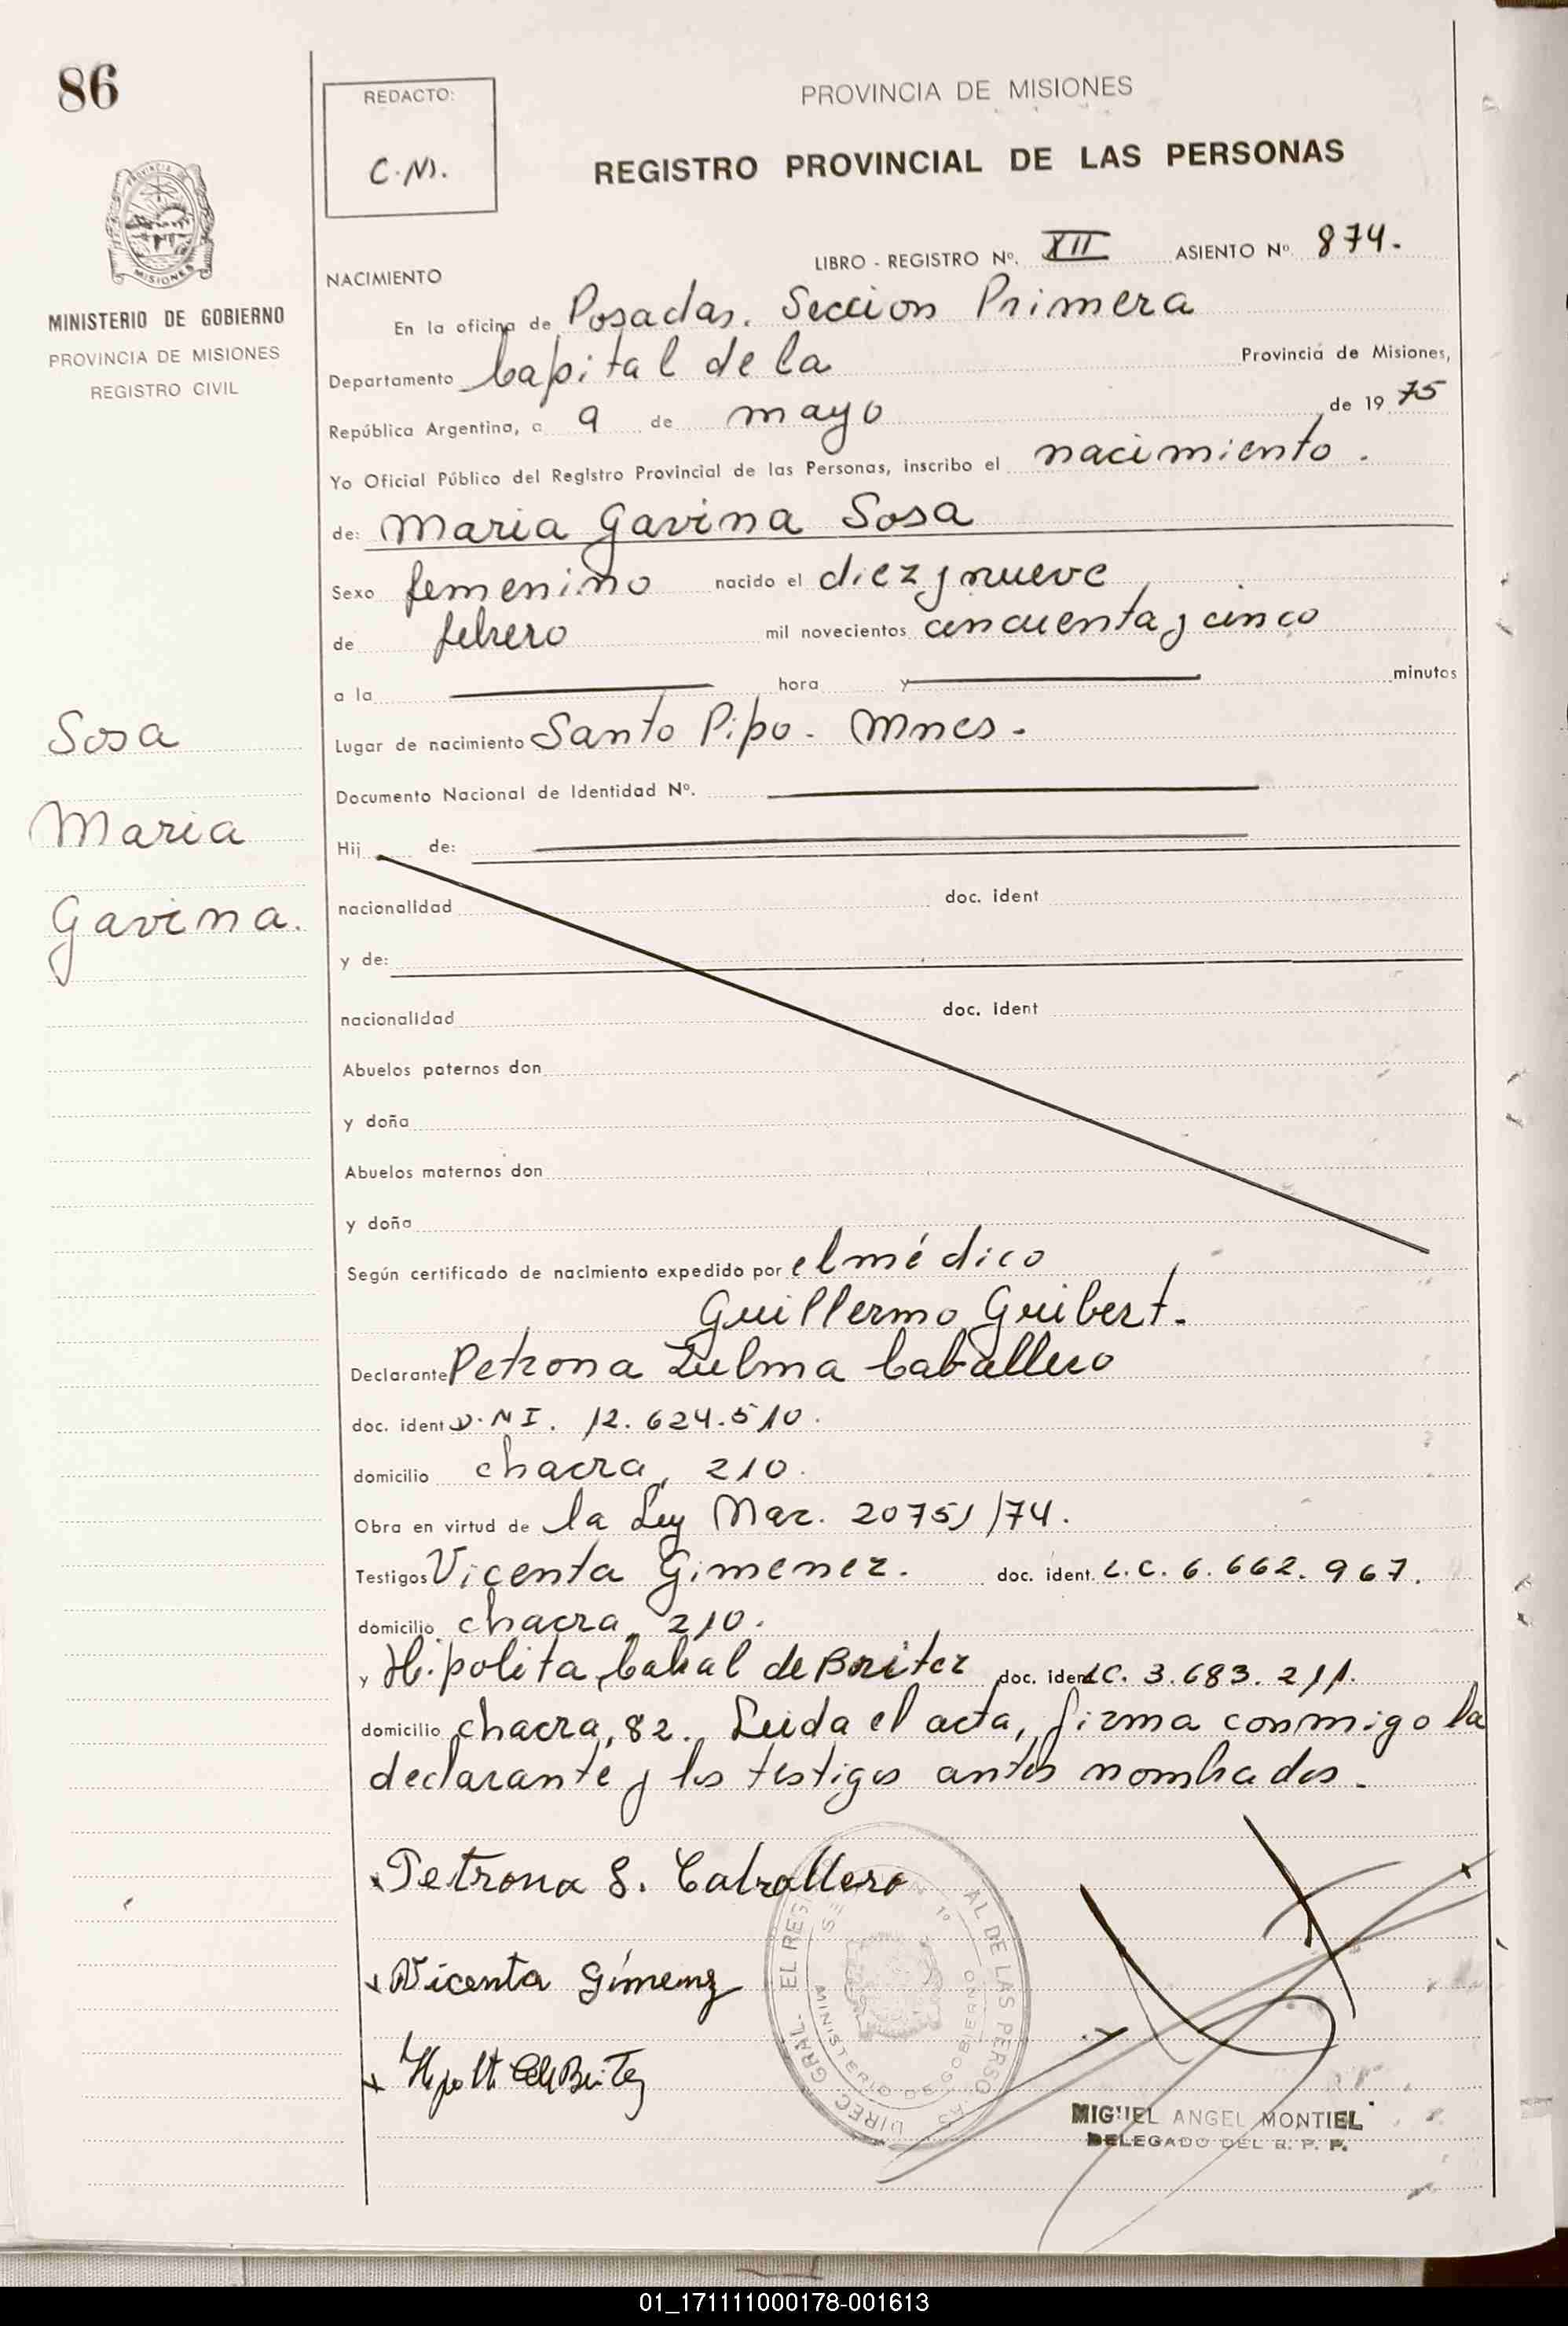 86
REDACTO:
C.N.
PROVINCIA DE MISIONES
REGISTRO PROVINCIAL DE LAS PERSONAS
MISIONES
MINISTERIO DE GOBIERNO
PROVINCIA DE MISIONES
REGISTRO CIVIL
LIBRO - REGISTRO Nº. XII ASIENTO Nº. 874.
NACIMIENTO
En la oficina de Posadas. Seccion Primera
Departamento Capital de la Provincia de Misiones,
República Argentina, a 9 de mayo de 1975
Yo Oficial Público del Registro Provincial de las Personas, inscribo el nacimiento.
de: Maria Gavina Sosa
Sexo femenino nacido el diez y nueve
de febrero mil novecientos cincuenta y cinco
a la hora y minutos
Lugar de nacimiento Santo Pipo. Mnes.
Documento Nacional de Identidad Nº.
Hij de:
nacionalidad doc. ident
y de:
nacionalidad doc. ident
Abuelos paternos don
y doña
Abuelos maternos don
y doña
Sosa
Maria
Gavina.
Según certificado de nacimiento expedido por el médico
Guillermo Guibert.
Declarante Petrona Zulma Caballero
doc. ident D.N I. 12.624.510.
domicilio chacra, 210.
Obra en virtud de la Ley Nac. 20751/74.
Testigos Vicenta Gimenez. doc. ident. L.C. 6.662.967.
domicilio chacra, 210.
y Hipolita Cabral de Britez doc. ident LC. 3.683.211.
domicilio chacra, 82. Leida el acta, firma conmigo la
declarante y los testigos antes nombrados.
Petrona S. Caballero
Vicenta Gimenz
DIREC. GRAL. DEL REGI AL DE LAS PERSO AS
MINISTERIO DE GOBIERNO
MIGUEL ANGEL MONTIEL
DELEGADO DEL R. P. P.
01_171111000178-001613